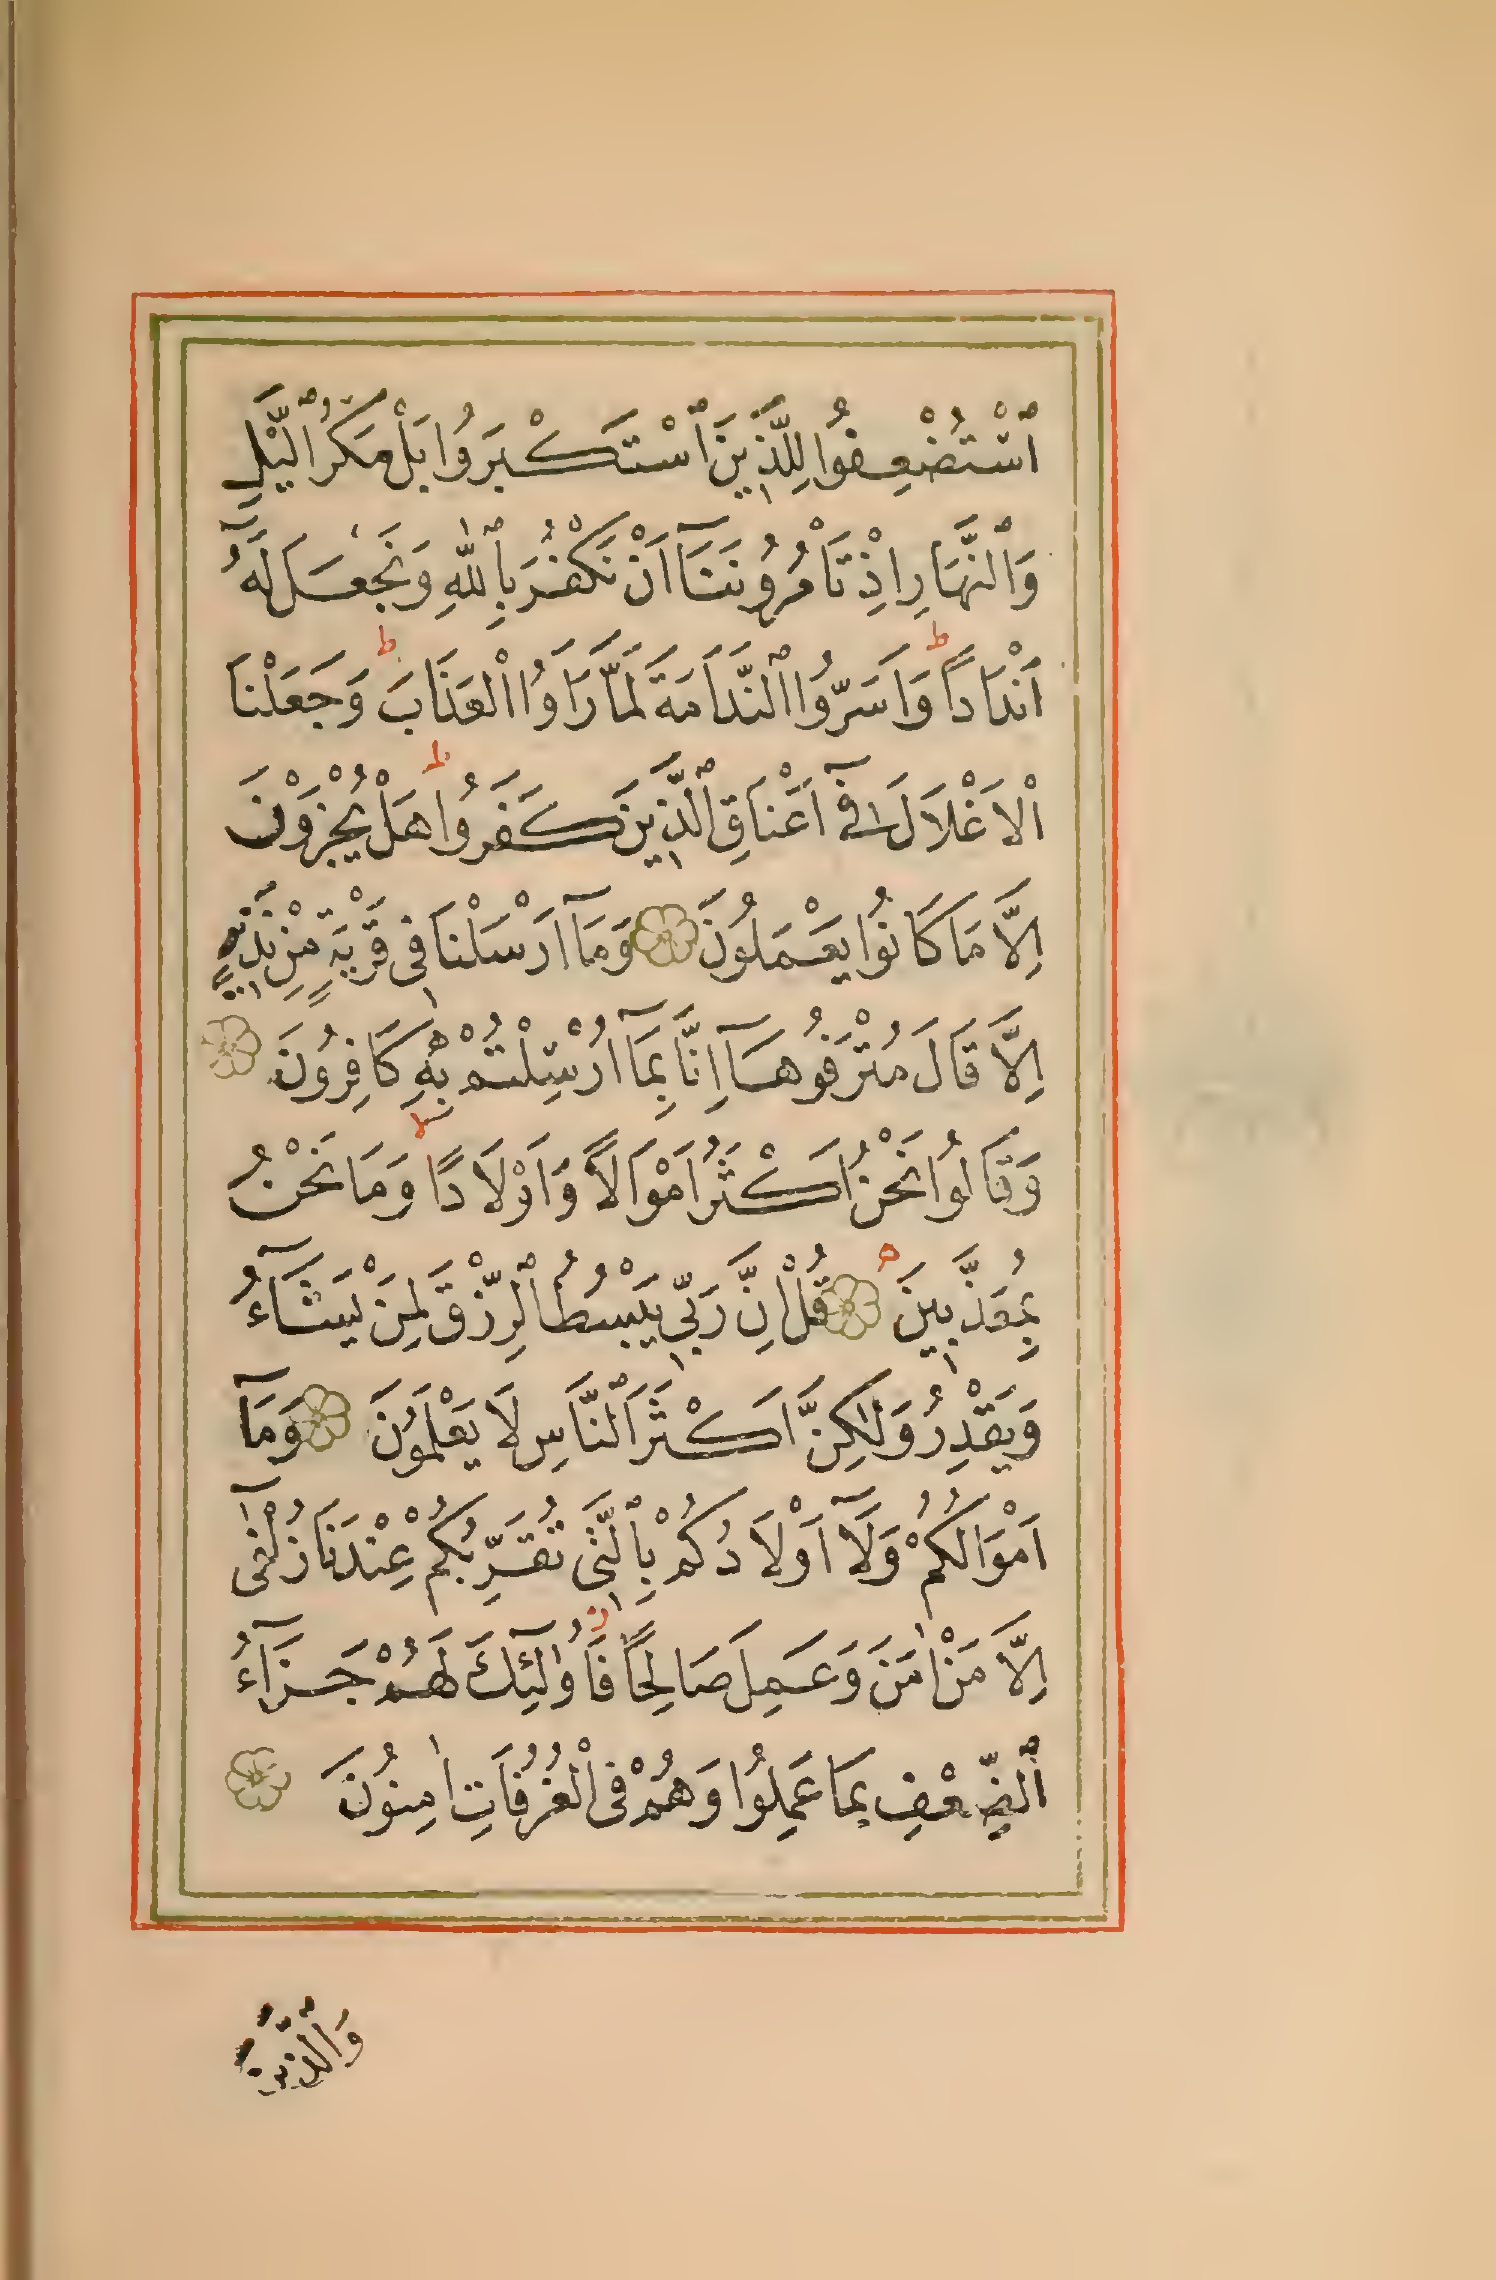 ٱسْتُضْعِفُوا لِلَّذِينَ ٱسْتَكْبَرُوا بَلْ مَكْرُ ٱلَّيْلِ
وَٱلنَّهَارِ اِذْ تَأْمُرُونَنَآ اَنْ نَكْفُرَ بِٱللّٰهِ وَنَجْعَلَ لَهُٓ
اَنْدَادًا ط وَاَسَرُّوا ٱلنَّدَامَةَ لَمَّا رَاَوُا الْعَذَابَ ط وَجَعَلْنَا
الْاَغْلَالَ فِٓى اَعْنَاقِ ٱلَّذِينَ كَفَرُوا ط هَلْ يُجْزَوْنَ
اِلَّا مَا كَانُوا يَعْمَلُونَ وَمَآ اَرْسَلْنَا فِى قَرْيَةٍ مِنْ نَذِيرٍ
اِلَّا قَالَ مُتْرَفُوهَآ اِنَّا بِمَآ اُرْسِلْتُمْ بِهِ كَافِرُونَ
وَقَالُوا نَحْنُ اَكْثَرُ اَمْوَالًا وَاَوْلَادًا ط وَمَا نَحْنُ
بِمُعَذَّبِينَ ه قُلْ اِنَّ رَبِّى يَبْسُطُ ٱلرِّزْقَ لِمَنْ يَشَآءُ
وَيَقْدِرُ وَلٰكِنَّ اَكْثَرَ ٱلنَّاسِ لَا يَعْلَمُونَ وَمَآ
اَمْوَالُكُمْ وَلَآ اَوْلَادُكُمْ بِٱلَّتِى تُقَرِّبُكُمْ عِنْدَنَا زُلْفٰٓى
اِلَّا مَنْ اٰمَنَ وَعَمِلَ صَالِحًا ز فَاُولٰٓئِكَ لَهُمْ جَزَآءُ
ٱلضِّعْفِ بِمَا عَمِلُوا وَهُمْ فِى الْغُرُفَاتِ اٰمِنُونَ
وَٱلَّذِينَ